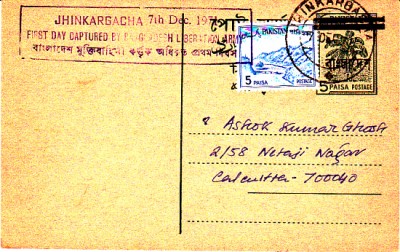 JHINKARGACHA 7th Dec. 197
FIRST DAY CAPTURED BY BANGLADESH LIBERATION ARMY
বাংলাদেশ মুক্তিবাহিনী কর্তৃক অধিকৃত প্রথম দিবস
PAKISTAN
5 PAISA
JHINKARGACHA
5 PAISA POSTAGE
Ashok Kumar Ghosh
2/58 Netaji Nagar
Calcutta- 700040